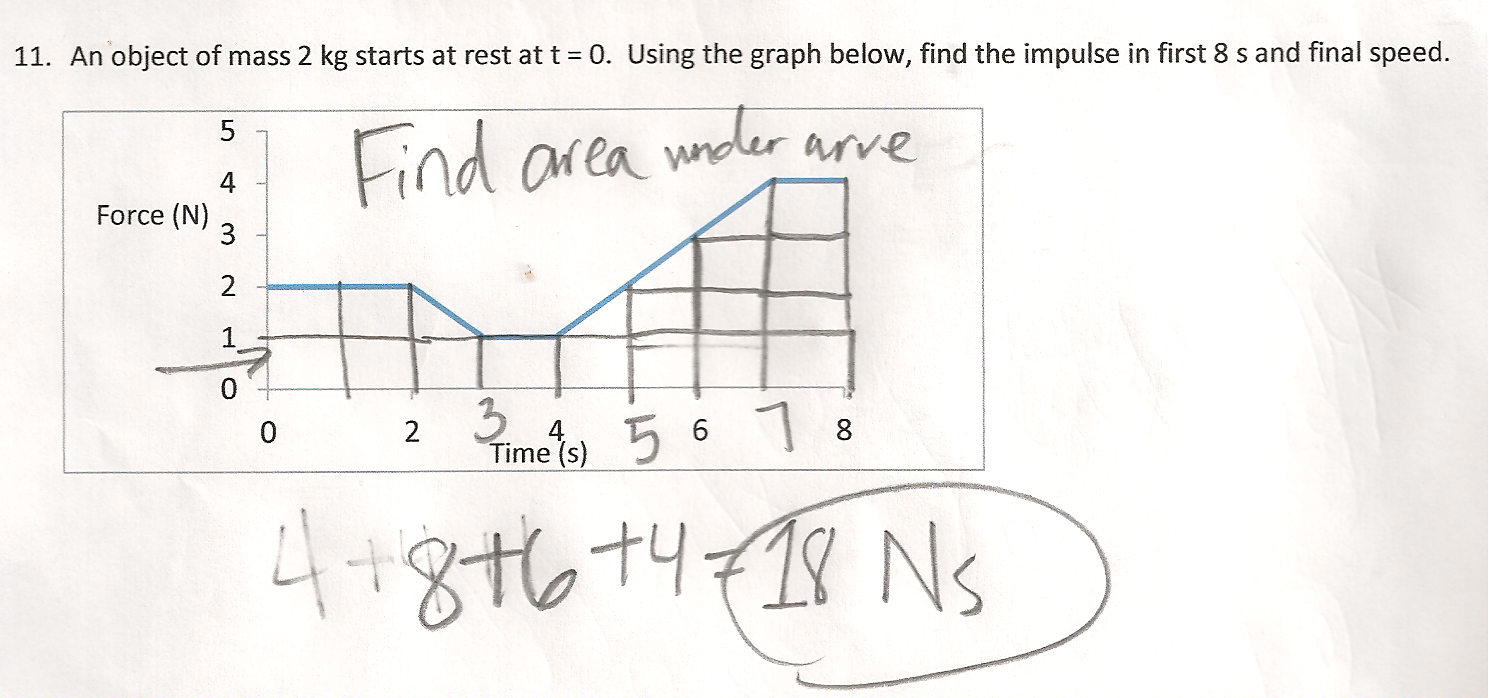 11. An object of mass 2 kg starts at rest at t = 0. Using the graph below, find the impulse in first 8 s and final speed.
Find area under curve
5
4
Force (N)
3
2
1
0
0 2 3 4 5 6 7 8
Time (s)
4+8+6+4=18 Ns